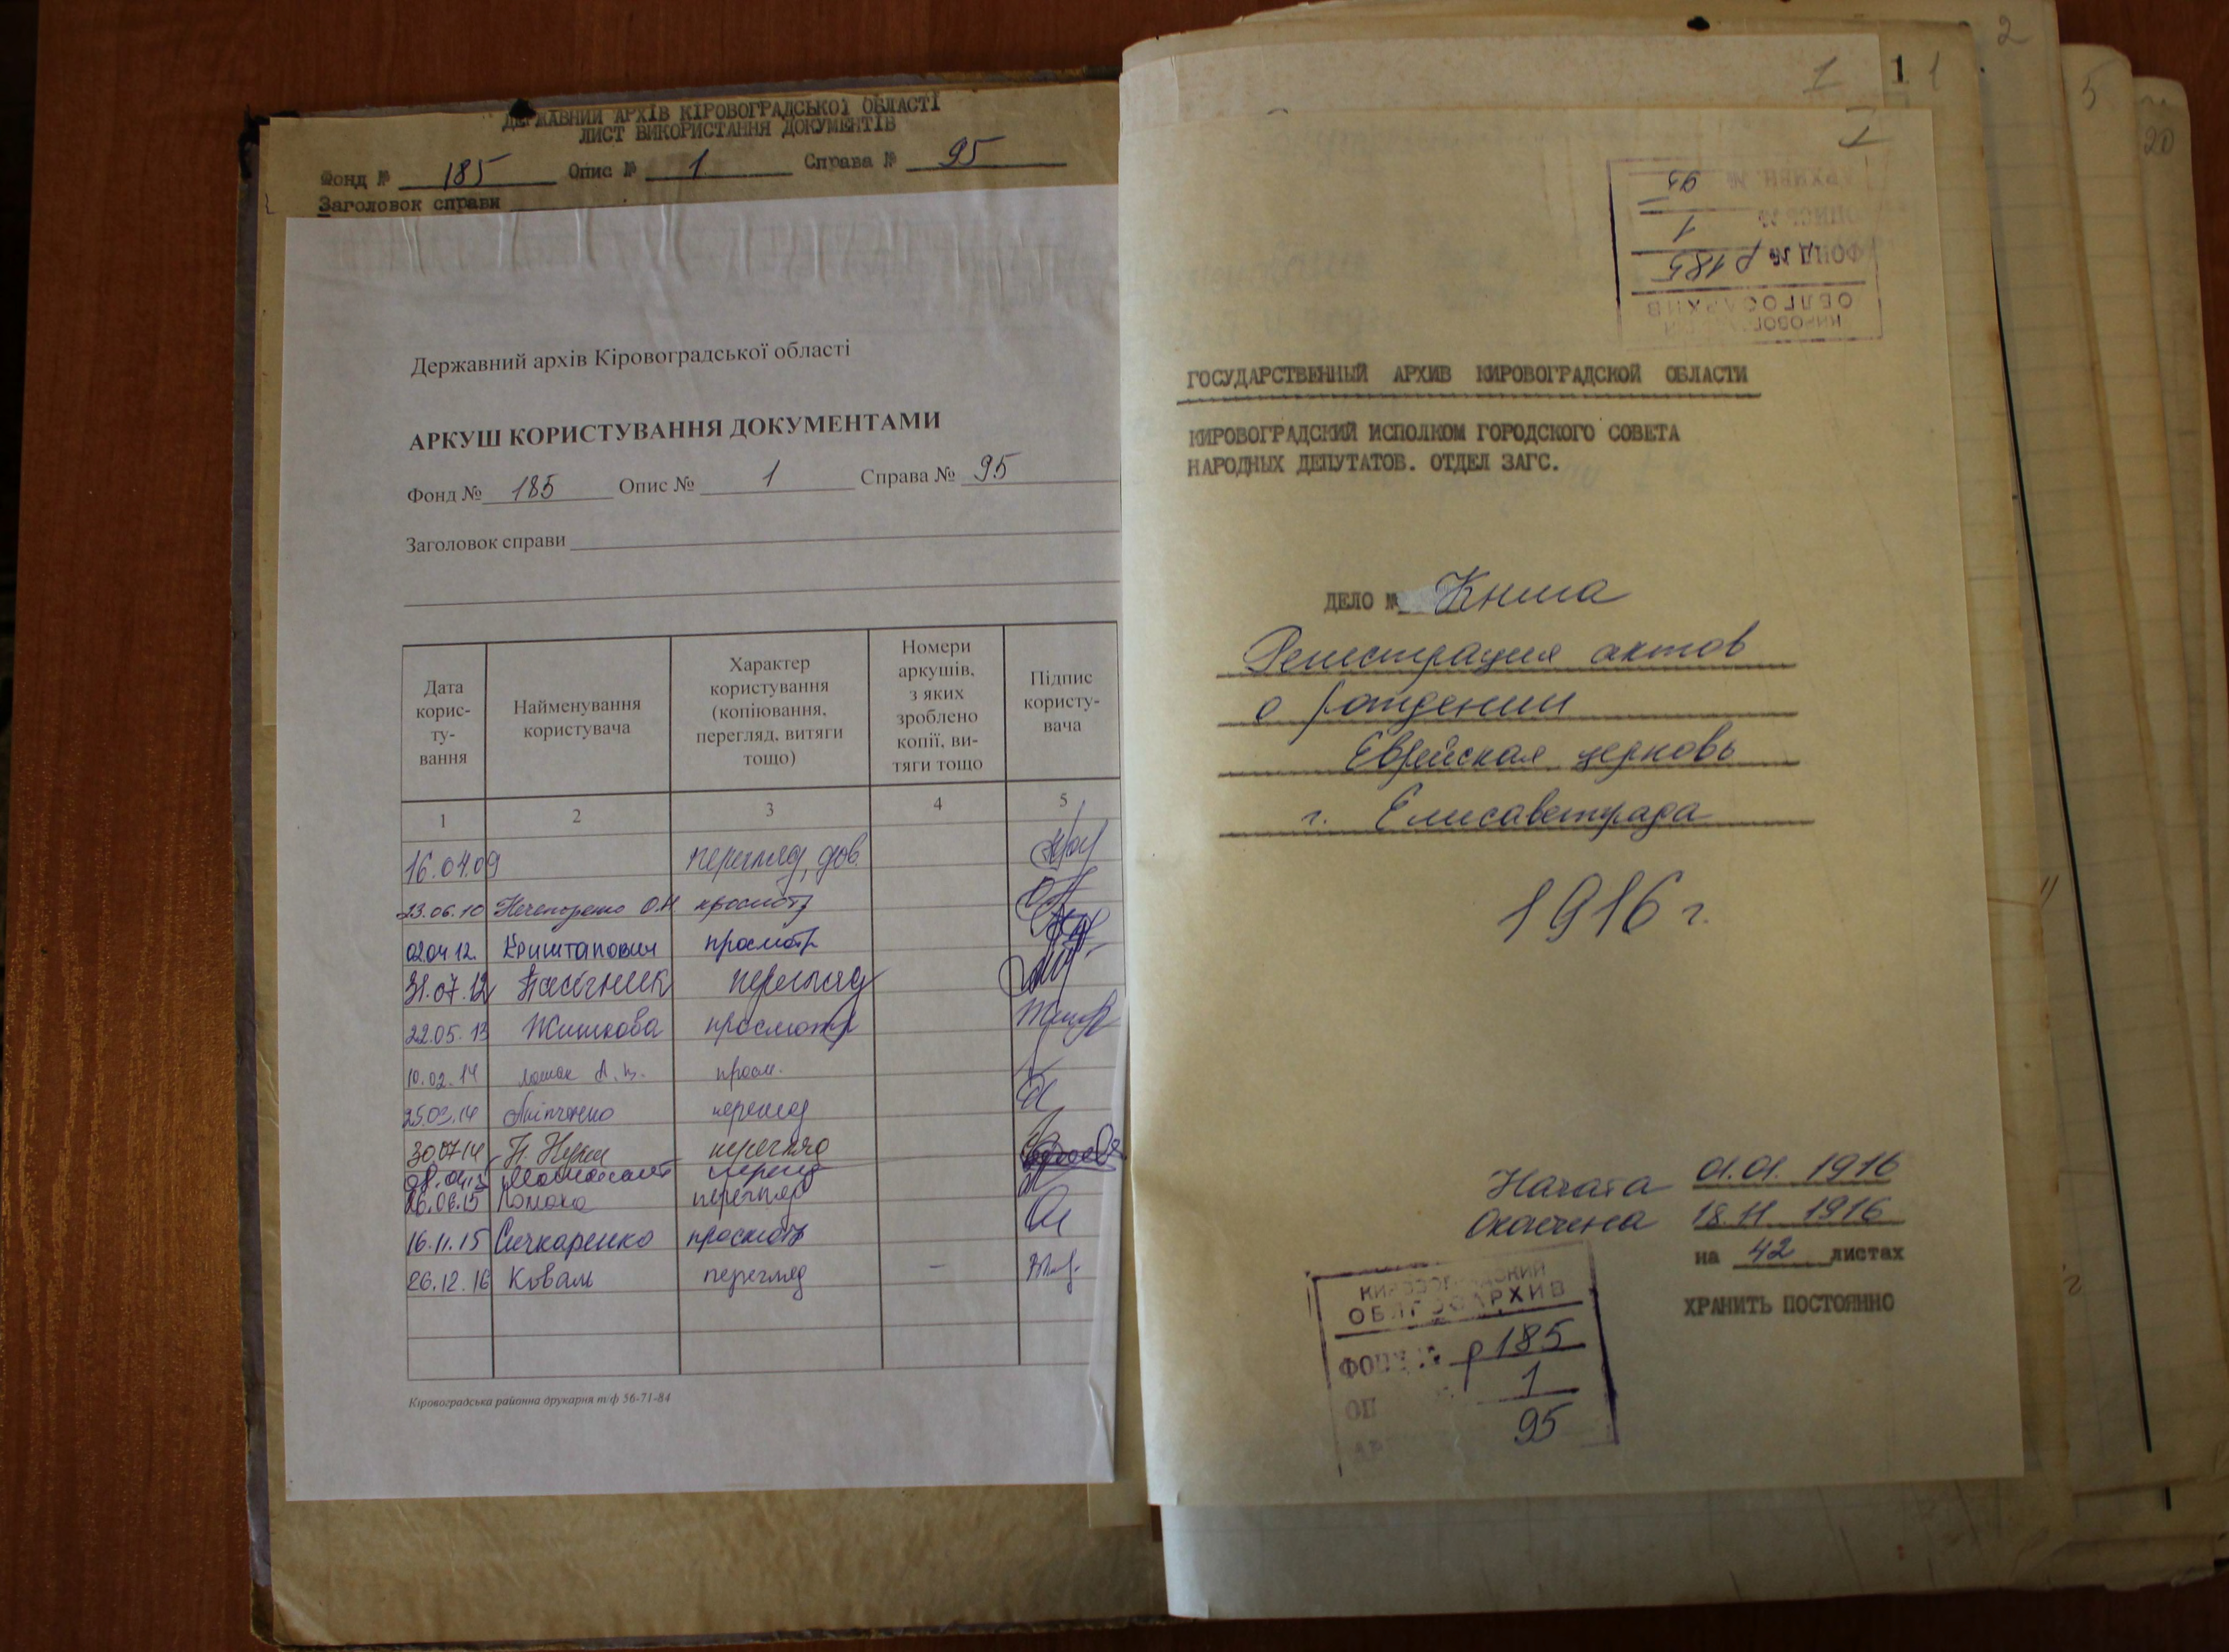 ДЕРЖАВНИЙ АРХІВ КІРОВОГРАДСЬКОЇ ОБЛАСТІ
ЛИСТ ВИКОРИСТАННЯ ДОКУМЕНТІВ
Фонд № 185 Опис № 1 Справа № 95
Заголовок справи
Державний архів Кіровоградської області
АРКУШ КОРИСТУВАННЯ ДОКУМЕНТАМИ
Фонд № 185 Опис № 1 Справа № 95
Заголовок справи
Дата корис-ту-вання
Найменування користувача
Характер користування (копіювання, перегляд, витяги тощо)
Номери аркушів, з яких зроблено копії, ви-тяги тощо
Підпис користу-вача
1 2 3 4 5
16.04.09 перегляд, дов.
23.06.10 просмотр
02.04.12. Криштапович просмотр
31.07.12 Пасічник перегляд
22.05.13 Жишкова просмотр
10.02.14 просм.
25.03.14 перегляд
30.07.14 перегляд
перегляд
26.06.15 перегляд
16.11.15 Сичкаренко просмотр
26.12.16 Коваль перегляд –
Кіровоградська районна друкарня т/ф 56-71-84
1 1 1
2
5
20
КИРОВОГРАДСКИЙ
ОБЛГОСАРХИВ
ФОНД № р185
ОПИСЬ № 1
АРХИВН. № 95
ГОСУДАРСТВЕННЫЙ АРХИВ КИРОВОГРАДСКОЙ ОБЛАСТИ
КИРОВОГРАДСКИЙ ИСПОЛКОМ ГОРОДСКОГО СОВЕТА
НАРОДНЫХ ДЕПУТАТОВ. ОТДЕЛ ЗАГС.
ДЕЛО № Книга
Регистрация актов
о рождении
Еврейская церковь
г. Елисаветграда
1916 г.
Начата 01.01. 1916
Окончена 18.11 1916
на 42 листах
ХРАНИТЬ ПОСТОЯННО
КИРОВОГРАДСКИЙ
ОБЛГОСАРХИВ
ФОНД № р185
ОП 1
АР 95